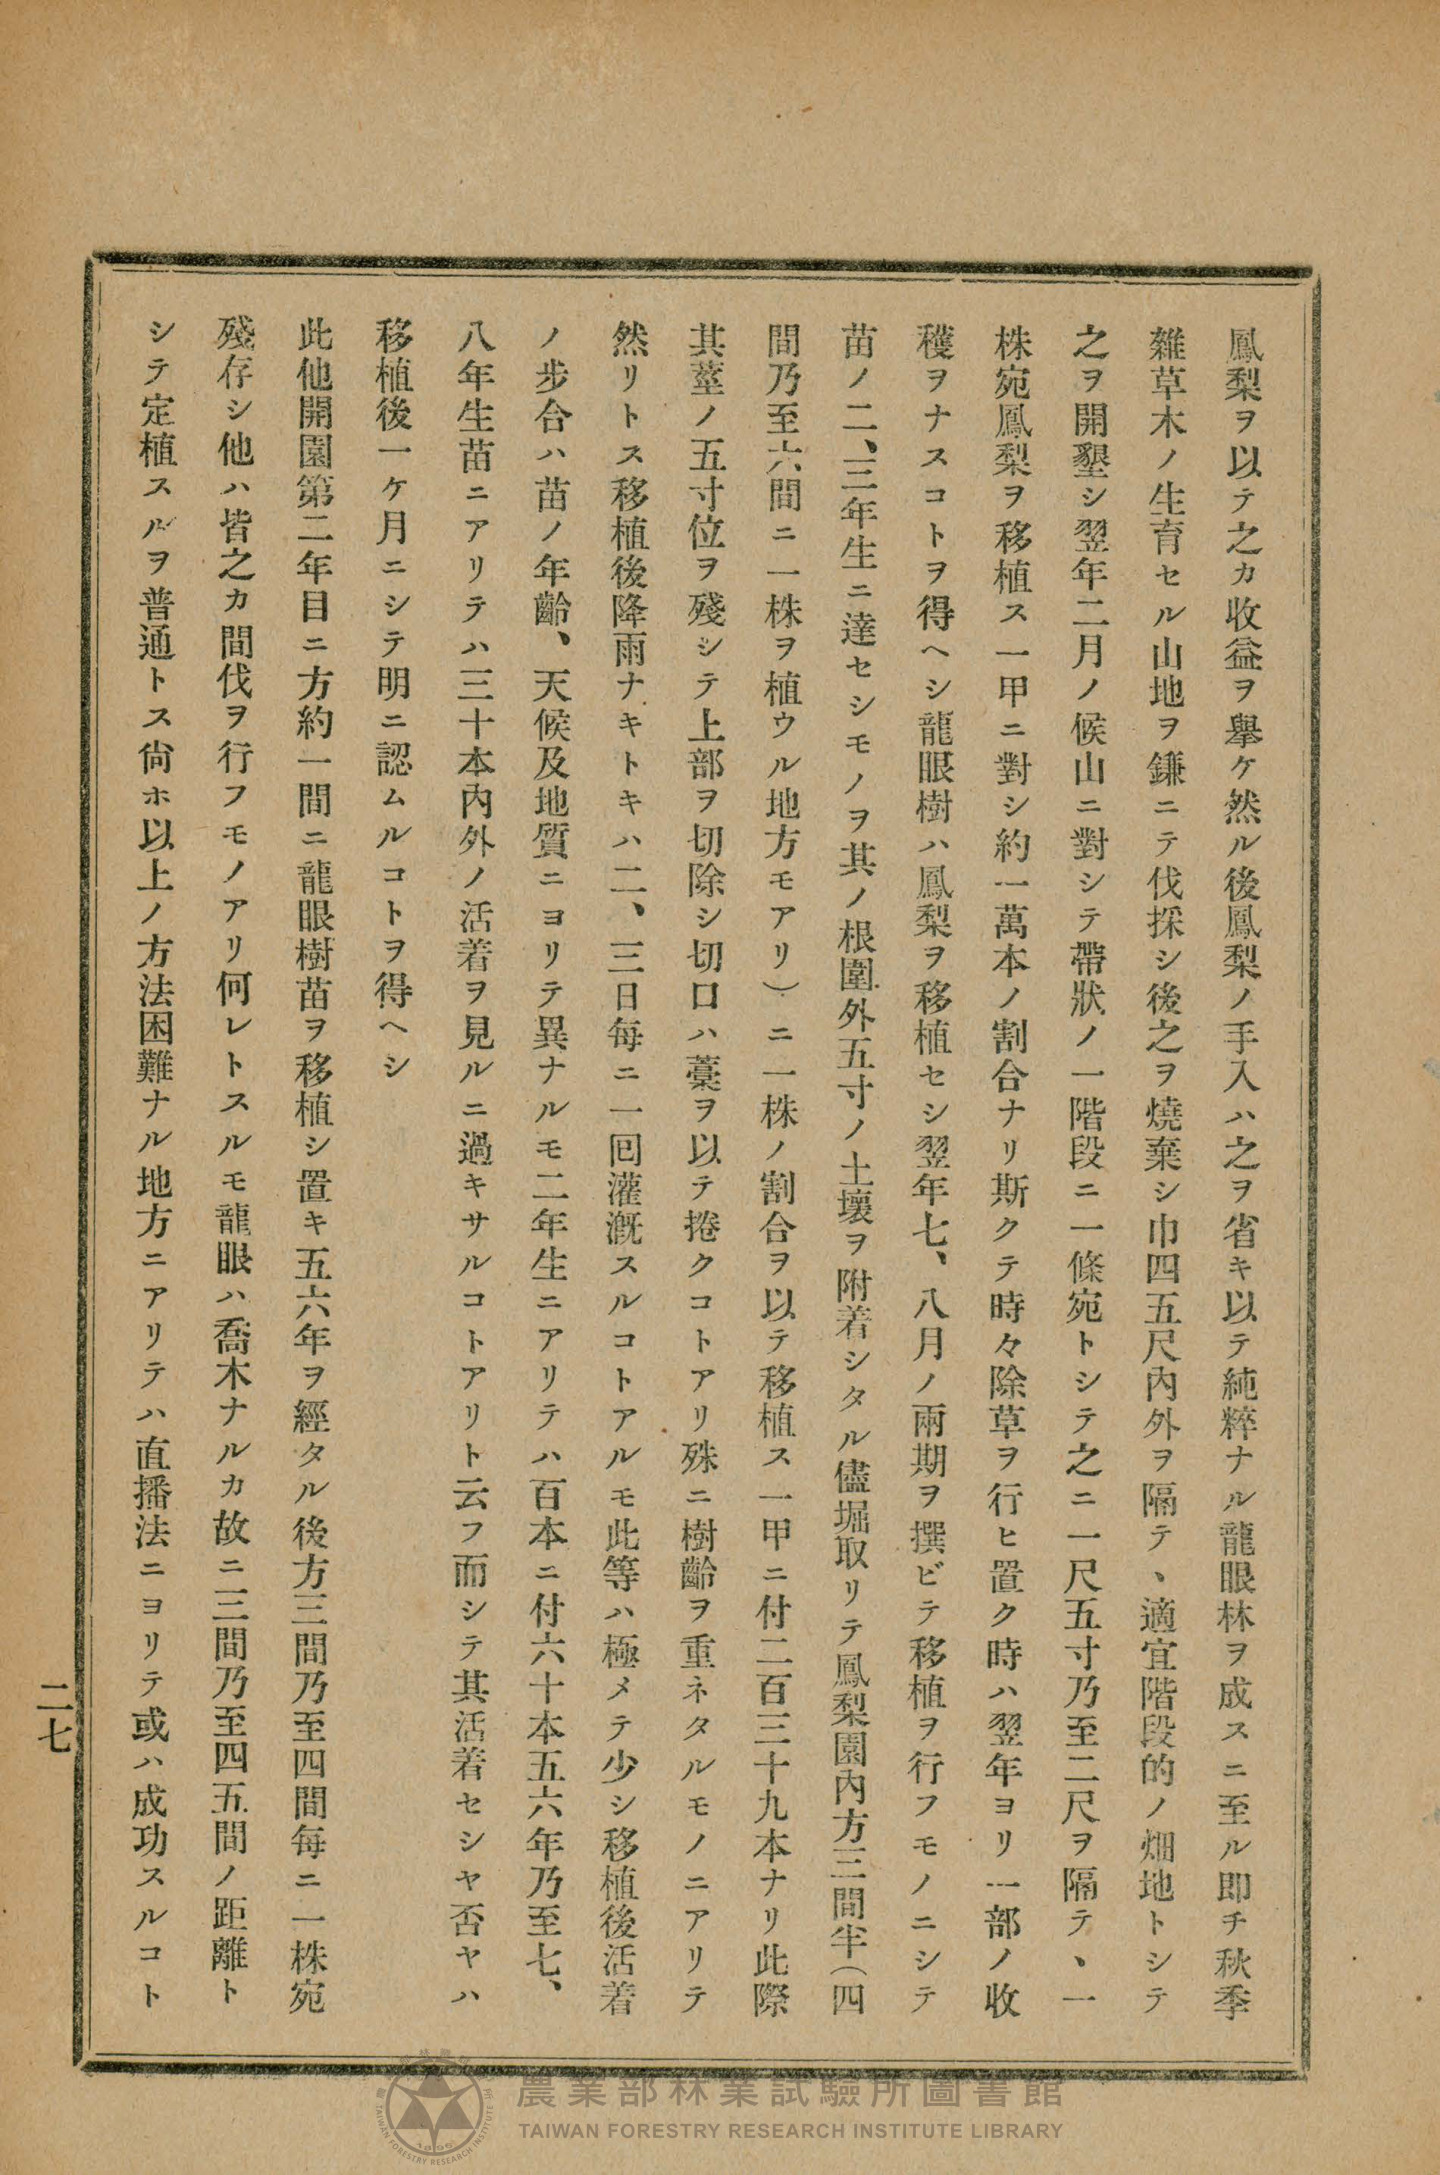 鳳梨ヲ以テ之カ收益ヲ擧ケ然ル後鳳梨ノ手入ハ之ヲ省キ以テ純粹ナル龍眼林ヲ成スニ至ル即チ秋季
雜草木ノ生育セル山地ヲ鎌ニテ伐採シ後之ヲ燒棄シ巾四五尺內外ヲ隔テ、適宜階段的ノ畑地トシテ
之ヲ開墾シ翌年二月ノ候山ニ對シテ帶狀ノ一階段ニ一條宛トシテ之ニ一尺五寸乃至二尺ヲ隔テ、一
株宛鳳梨ヲ移植ス一甲ニ對シ約一萬本ノ割合ナリ斯クテ時々除草ヲ行ヒ置ク時ハ翌年ヨリ一部ノ收
穫ヲナスコトヲ得ヘシ龍眼樹ハ鳳梨ヲ移植セシ翌年七、八月ノ兩期ヲ撰ビテ移植ヲ行フモノニシテ
苗ノ二、三年生ニ達セシモノヲ其ノ根圍外五寸ノ土壤ヲ附着シタル儘堀取リテ鳳梨園內方三間半(四
間乃至六間ニ一株ヲ植ウル地方モアリ)ニ一株ノ割合ヲ以テ移植ス一甲ニ付二百三十九本ナリ此際
其莖ノ五寸位ヲ殘シテ上部ヲ切除シ切口ハ藁ヲ以テ捲クコトアリ殊ニ樹齡ヲ重ネタルモノニアリテ
然リトス移植後降雨ナキトキハ二、三日每ニ一回灌漑スルコトアルモ此等ハ極メテ少シ移植後活着
ノ步合ハ苗ノ年齡、天候及地質ニヨリテ異ナルモ二年生ニアリテハ百本ニ付六十本五六年乃至七、
八年生苗ニアリテハ三十本內外ノ活着ヲ見ルニ過キサルコトアリト云フ而シテ其活着セシヤ否ヤハ
移植後一ケ月ニシテ明ニ認ムルコトヲ得ヘシ
此他開園第二年目ニ方約一間ニ龍眼樹苗ヲ移植シ置キ五六年ヲ經タル後方三間乃至四間每ニ一株宛
殘存シ他ハ皆之カ間伐ヲ行フモノアリ何レトスルモ龍眼ハ喬木ナルカ故ニ三間乃至四五間ノ距離ト
シテ定植スルヲ普通トス尙ホ以上ノ方法困難ナル地方ニアリテハ直播法ニヨリテ或ハ成功スルコト
二七
農業部林業試驗所圖書館
TAIWAN FORESTRY RESEARCH INSTITUTE LIBRARY